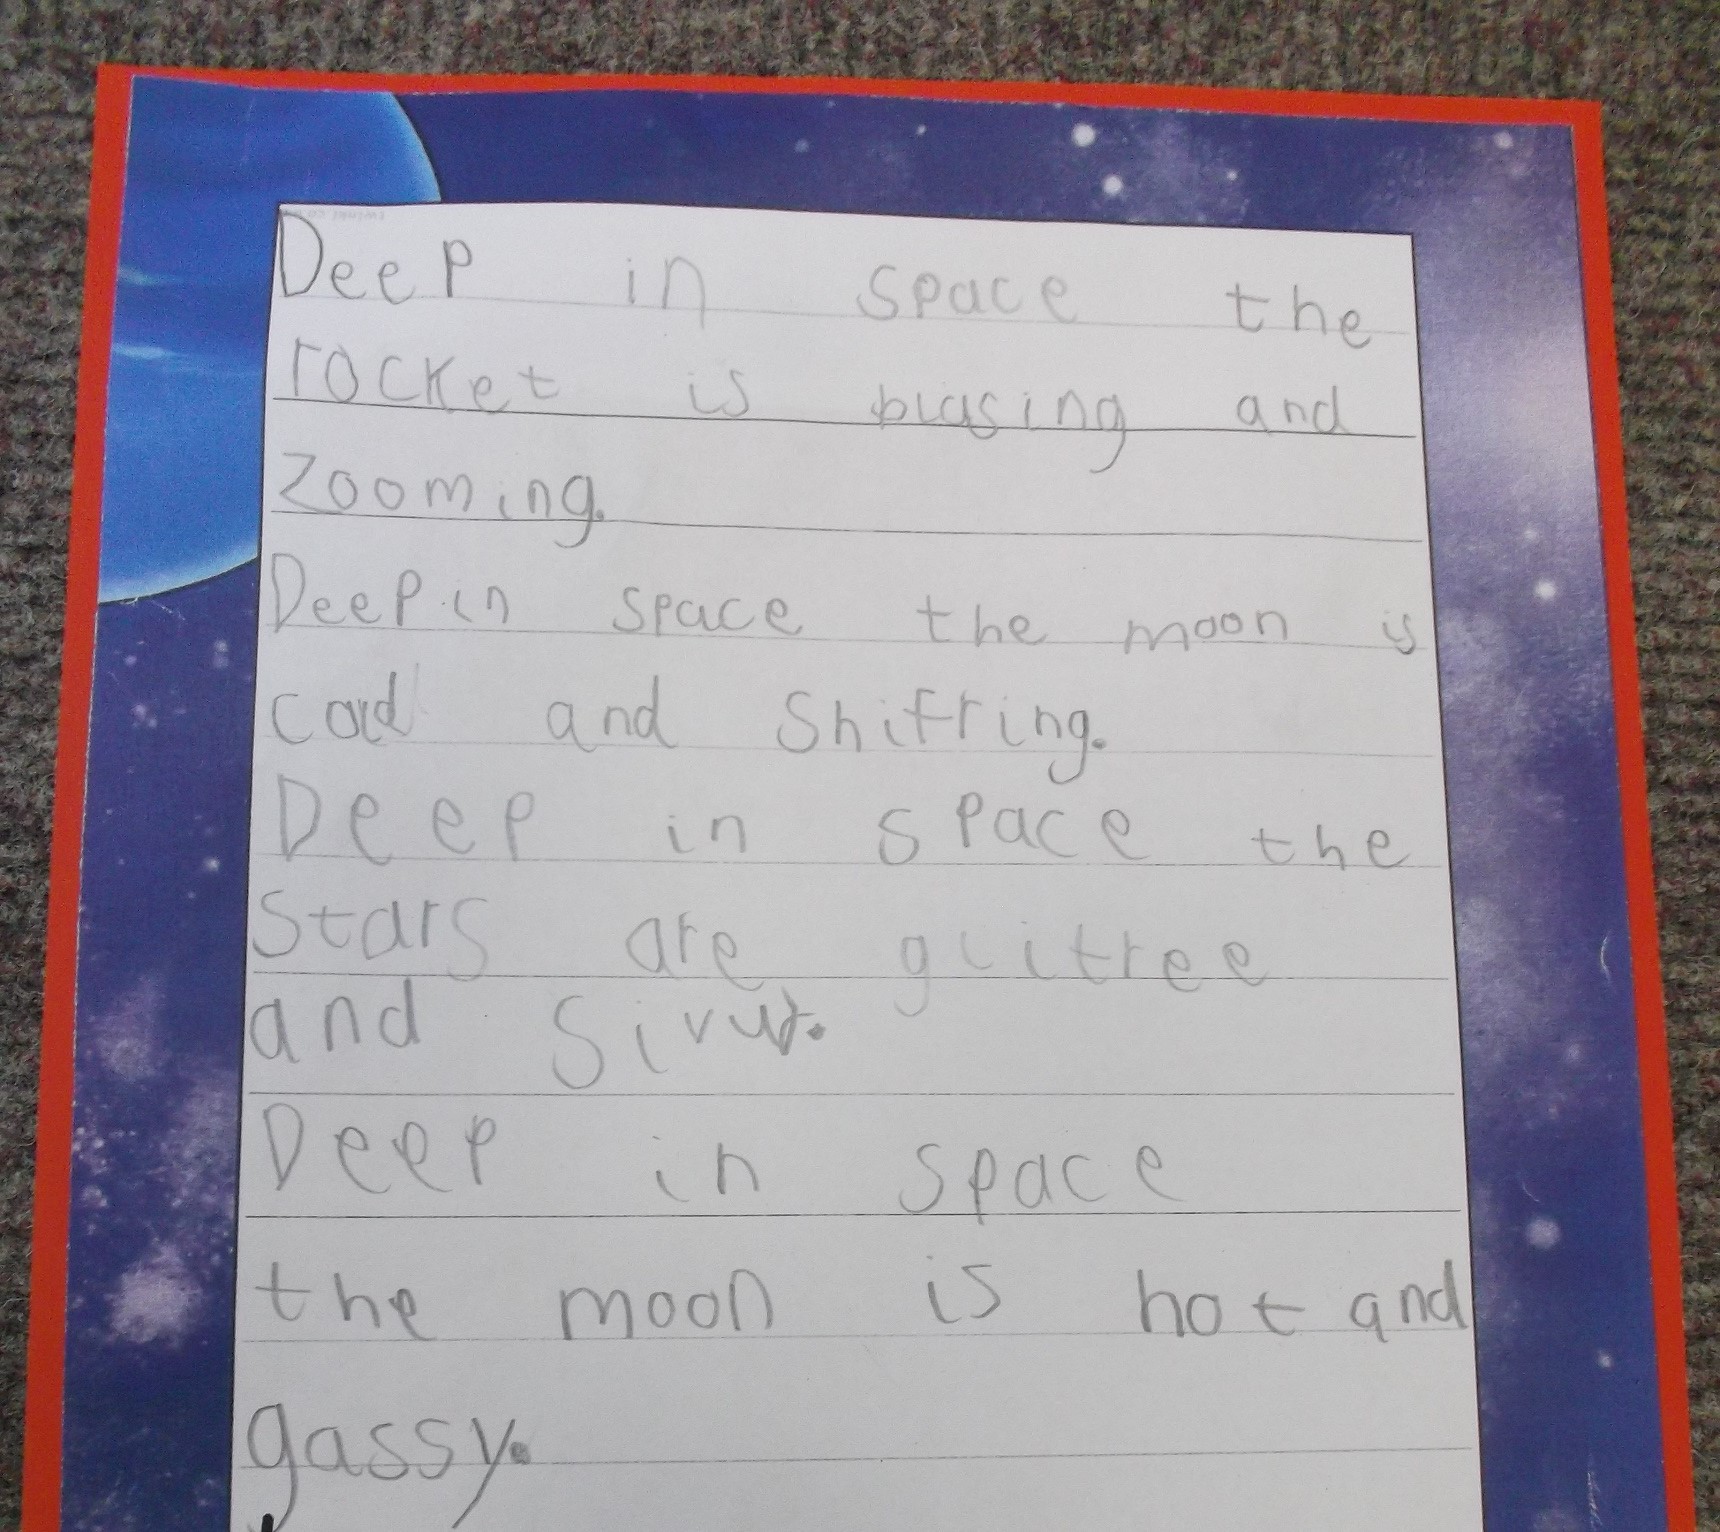 Deep in space the
rocket is blasing and
zooming.
Deep in space the moon is
cold and shifring.
Deep in space the
stars are glitree
and
Deep in space
the moon is hot and
gassy.